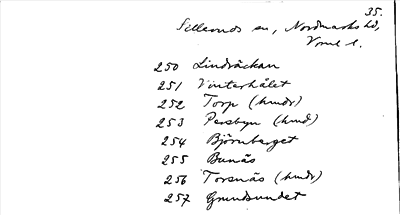 35.
Sillerud sn, Nordmarks hd,
Vrml l.
250 Lindräckan
251 Vinterhålet
252 Torp (hmdr)
253 Persbyn (hmd)
254 Björnberget
255 Bunäs
256 Torsnäs (hmdr)
257 Grundsundet